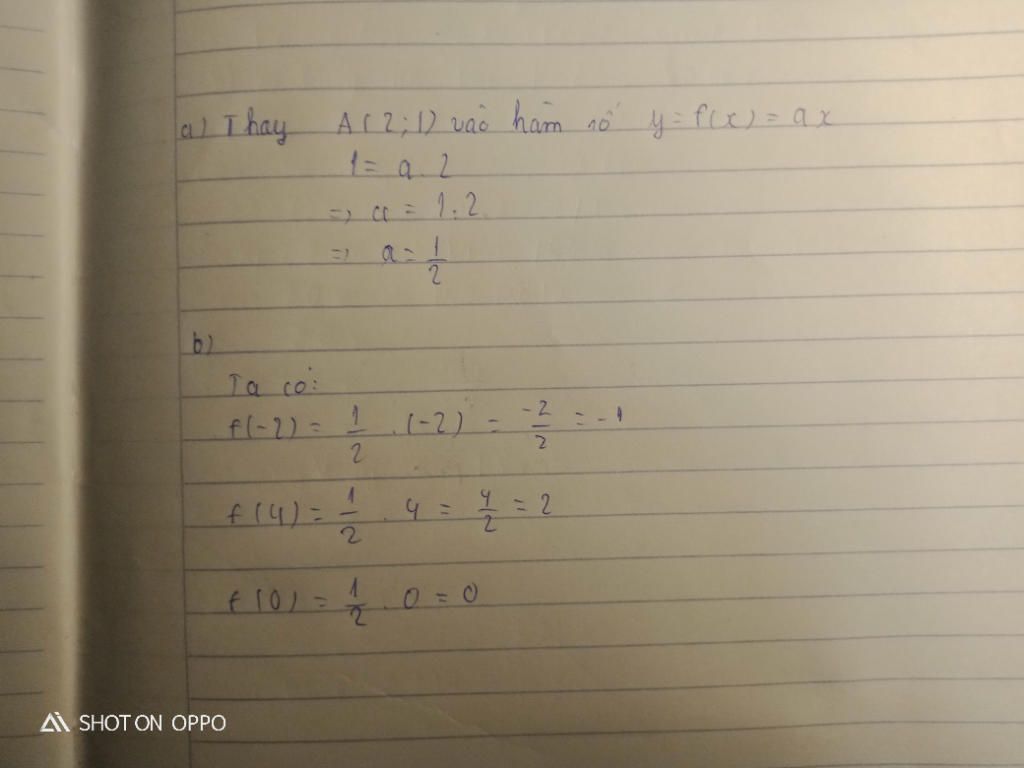 a) Thay A(2;1) vào hàm số y=f(x)=ax
1=a.2
=> a=1.2
=> a=1/2
b)
Ta có:
f(-2) = 1/2 . (-2) = -2/2 = -1
f(4) = 1/2 . 4 = 4/2 = 2
f(0) = 1/2 . 0 = 0
SHOT ON OPPO